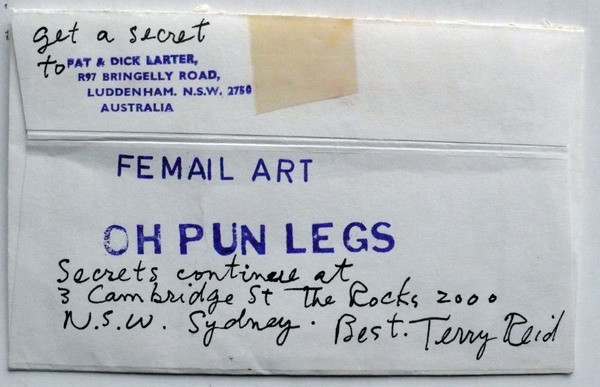 get a secret
to PAT & DICK LARTER,
R97 BRINGELLY ROAD,
LUDDENHAM. N.S.W. 2750
AUSTRALIA
FEMAIL ART
OH PUN LEGS
Secrets continue at
3 Cambridge St The Rocks 2000
N.S.W. Sydney. Best. Terry Reid